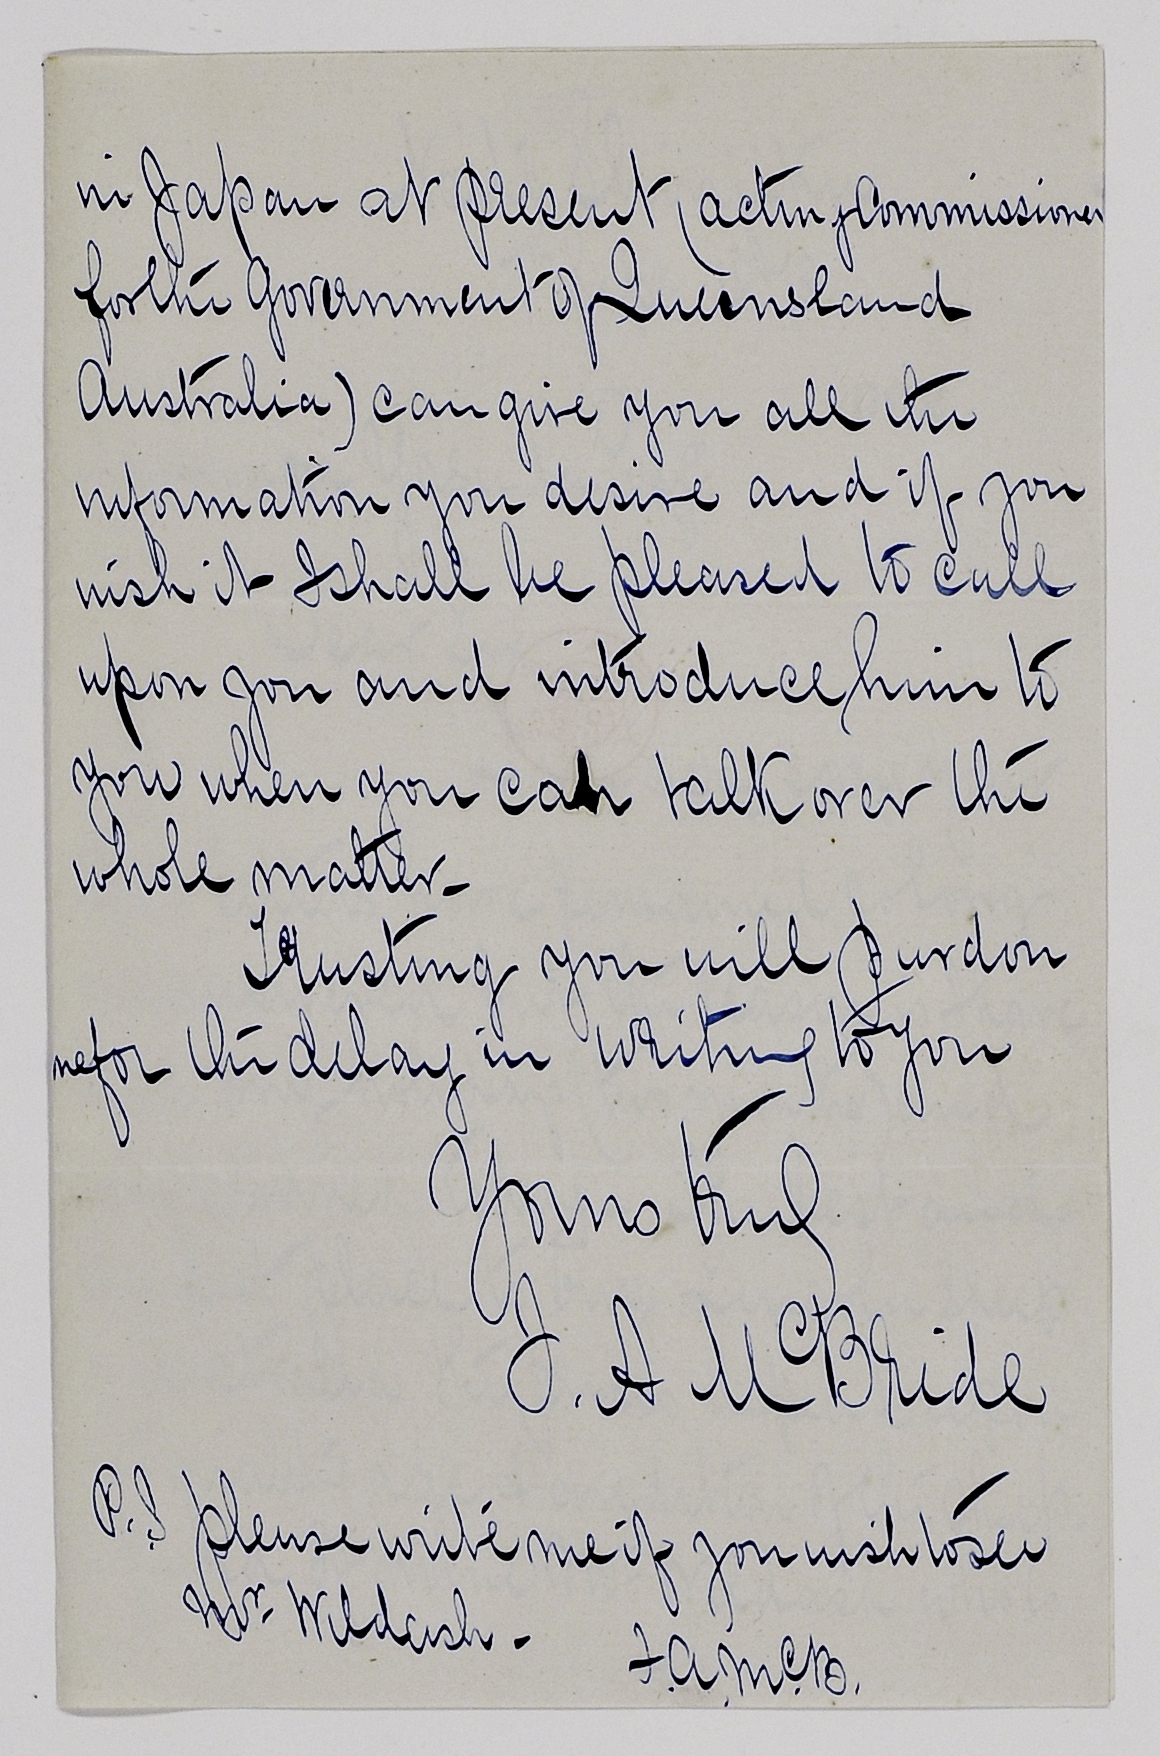 in Japan at present (acting Commissioner
for the Government of Queensland
Australia) can give you all the
information you desire and if you
wish it I shall be pleased to call
upon you and introduce him to
you when you can talk over the
whole matter-
Trusting you will pardon
me for the delay in writing to you
Yours truly
J. A McBride
P.S please write me if you wish to see
Mr. Wildash.-
J.A.McB.